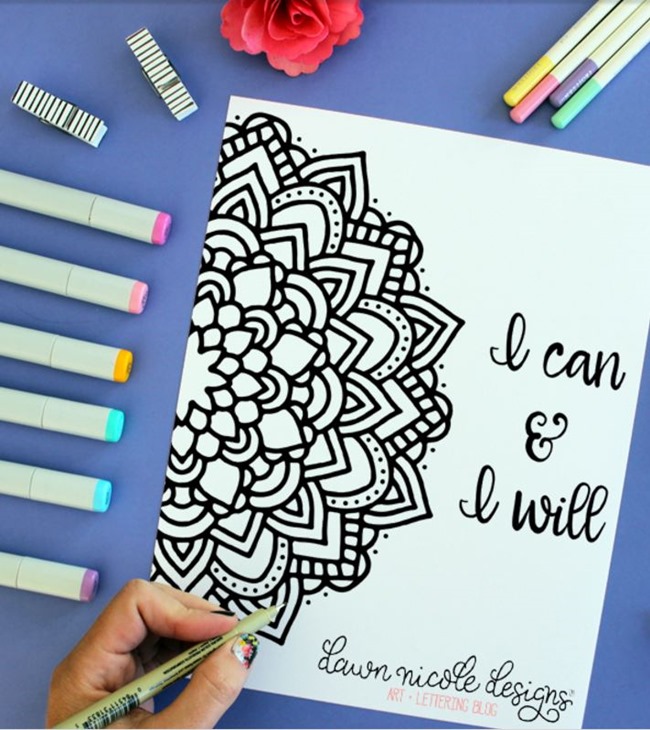 I can
&
I will
dawn nicole designs®
ART + LETTERING BLOG